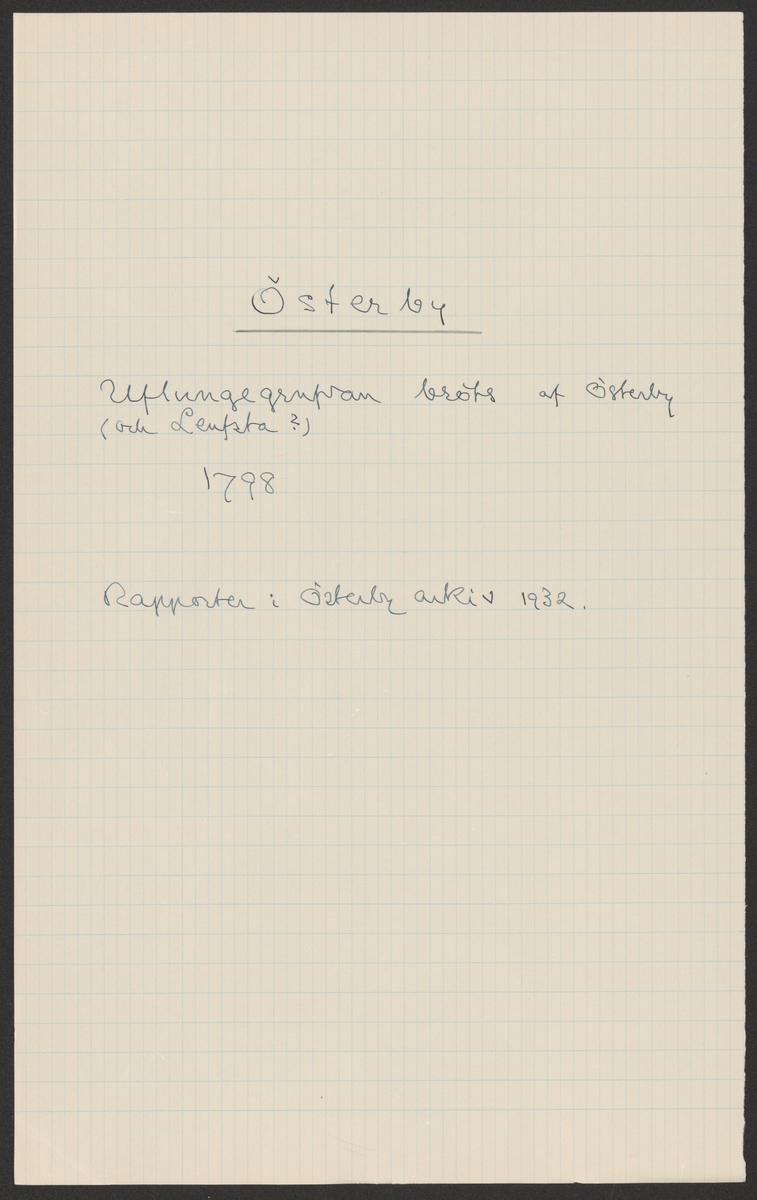 Österby
Uflungegrufvan bröts af Österby
(och Leufsta ?)
1798
Rapporter i Österby arkiv 1932.